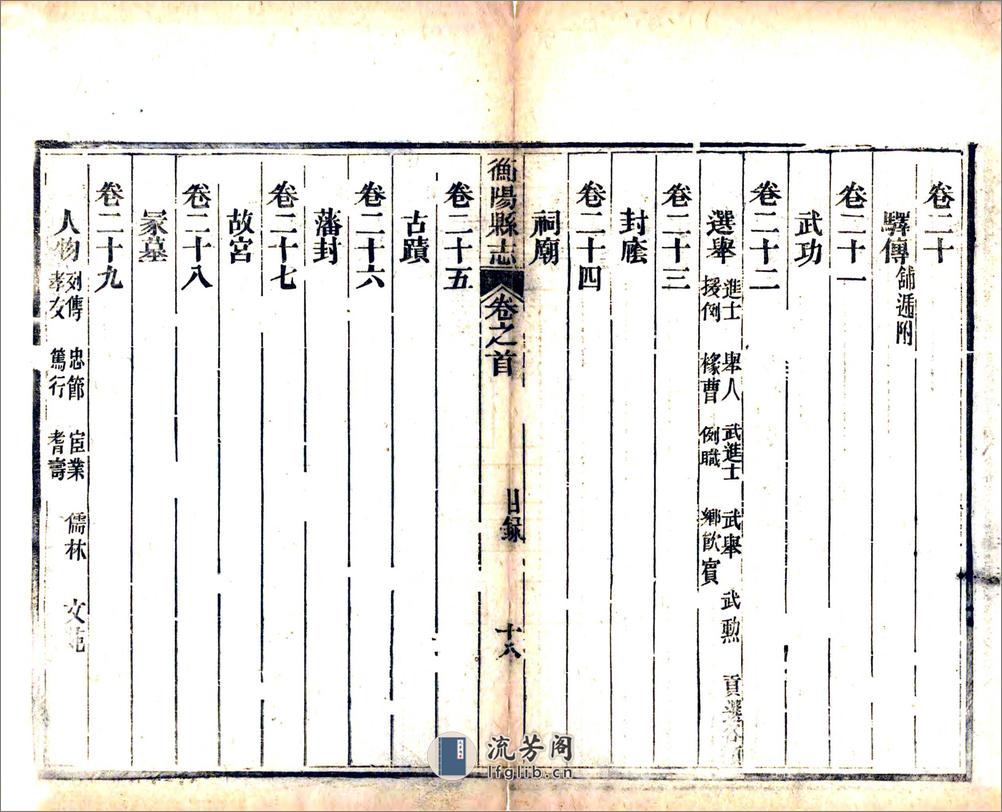 卷二十
驛傳 舖遞附
卷二十一
武功
卷二十二
選舉 進士 舉人 武進士 武舉 武勲 貢選
援例 椽曹 例職 鄉飲賓
卷二十三
封廕
卷二十四
祠廟
衡陽縣志 卷之首 目録 十八
卷二十五
古蹟
卷二十六
藩封
卷二十七
故宮
卷二十八
冢墓
卷二十九
人物 列傳 忠節 宦業 儒林 文苑
孝友 篤行 耆壽
流芳阁
lfglib.cn